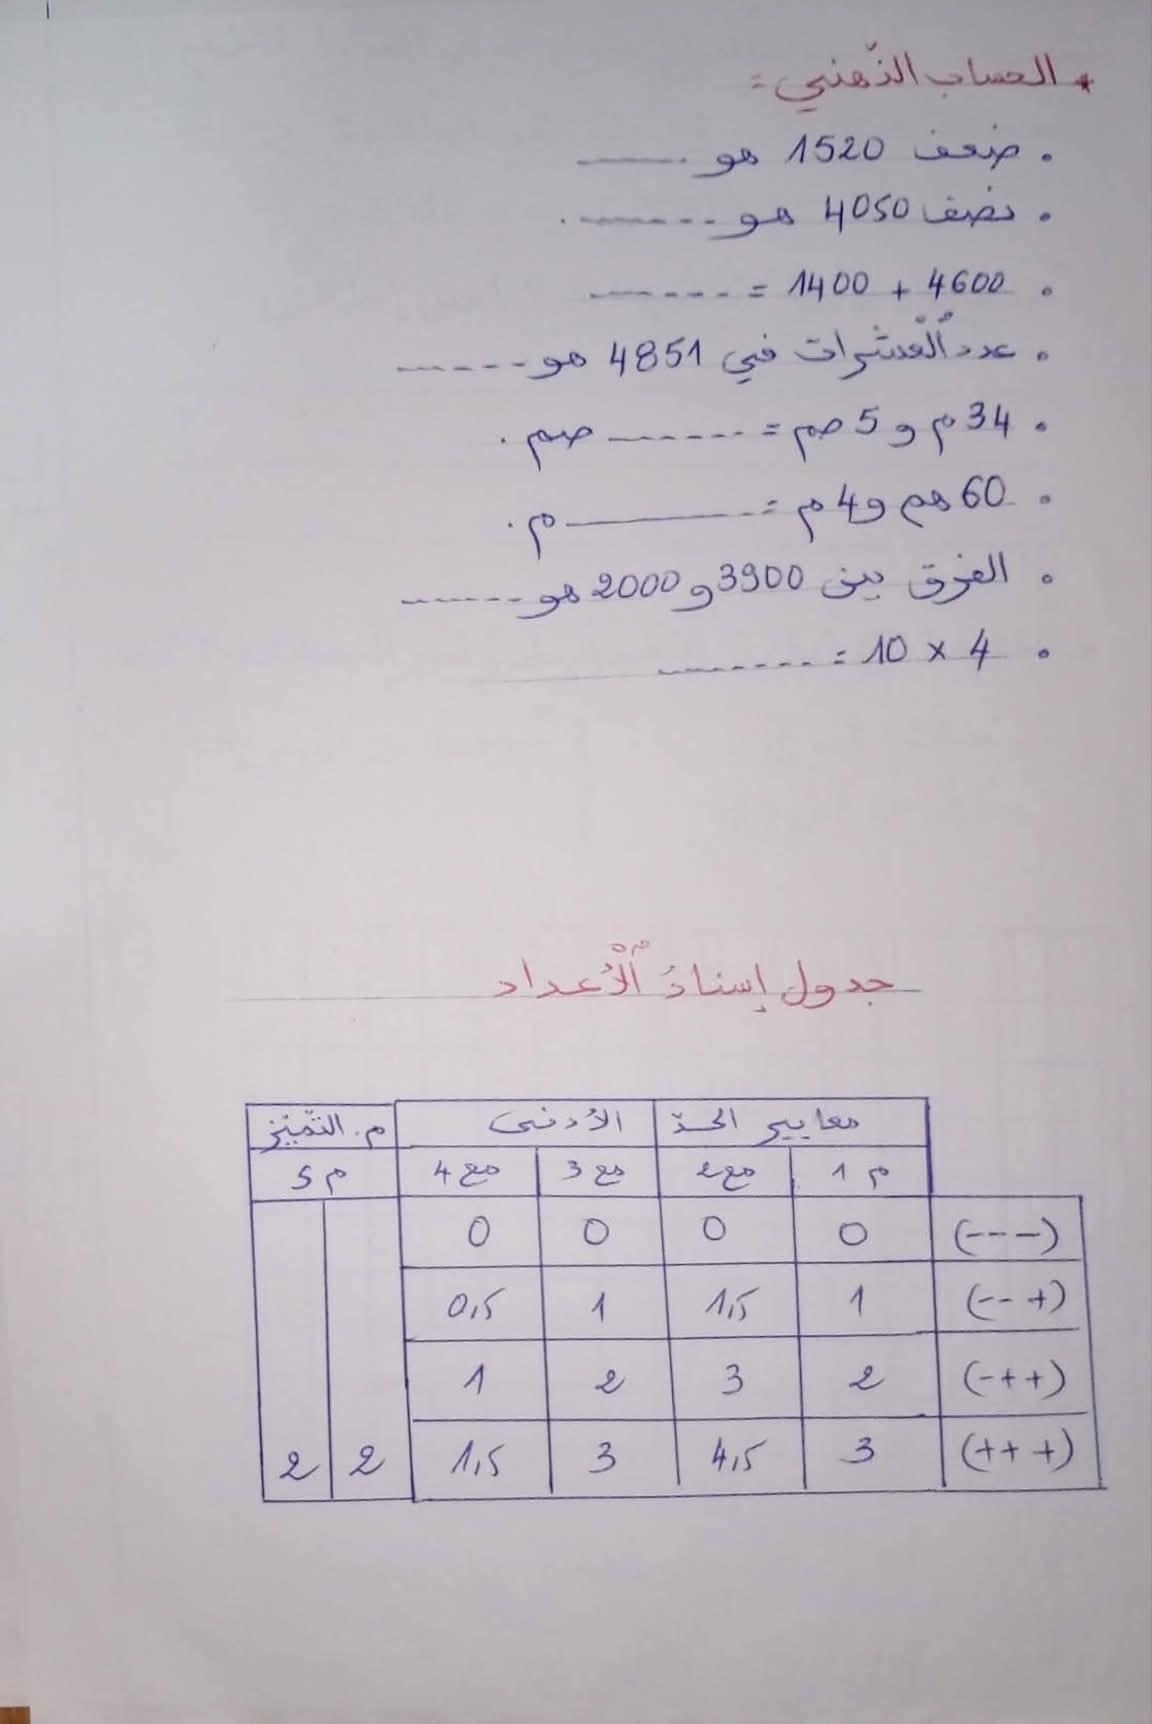 * الحساب الذّهني :
• ضعف 1520 هو ........
• نصف 4050 هو ........ .
• 4600 + 1400 = ........
• عدد ٱلْعشرات في 4851 هو ........
• 34 م و 5 صم = ........ صم .
• 60 هم و 4 م = ........ م .
• الفرق بين 3900 و 2000 هو ........
• 4 × 10 = ........
جدول إسنادُ ٱلْأعداد
معايير الحدّ الأدنى م. التّميّز
م 1 مع 2 مع 3 مع 4 م 5
(---) 0 0 0 0
(--+) 1 1,5 1 0,5
(-++) 2 3 2 1
(+++) 3 4,5 3 1,5 2 2